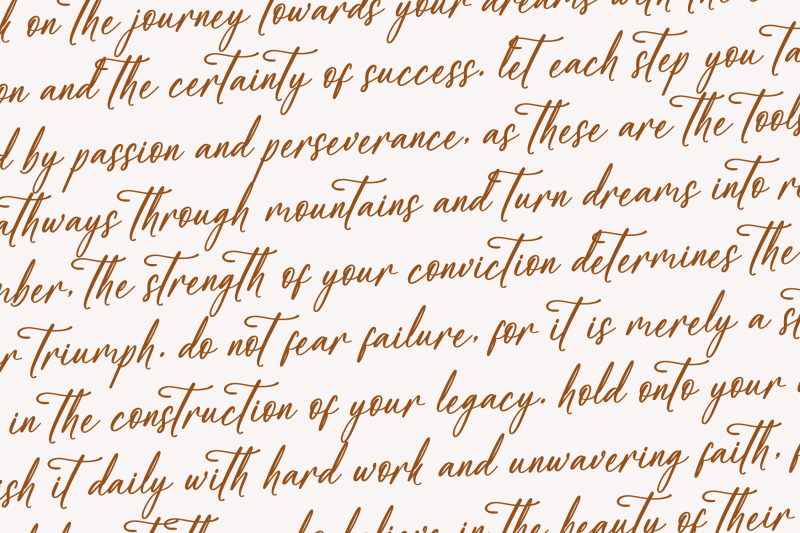 on the journey towards your dreams with the
on and the certainty of success. let each step you ta
d by passion and perseverance, as these are the tools
athways through mountains and turn dreams into r
mber, the strength of your conviction determines the
r triumph. do not fear failure, for it is merely a st
in the construction of your legacy. hold onto your
ish it daily with hard work and unwavering faith, f
believe in the beauty of their